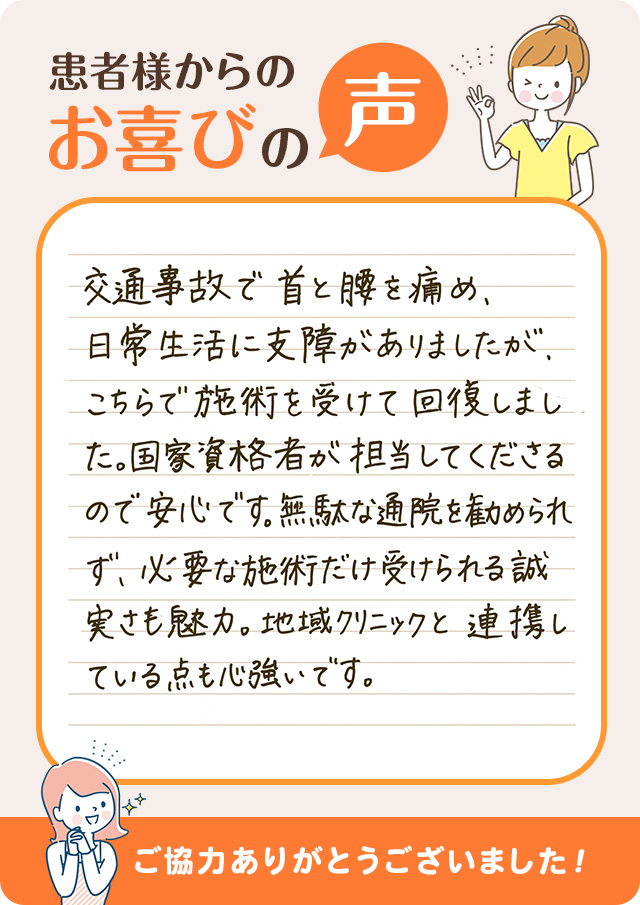 患者様からの
お喜びの
声
交通事故で首と腰を痛め、
日常生活に支障がありましたが、
こちらで施術を受けて回復しまし
た。国家資格者が担当してくださる
ので安心です。無駄な通院を勧められ
ず、必要な施術だけ受けられる誠
実さも魅力。地域クリニックと連携し
ている点も心強いです。
ご協力ありがとうございました!